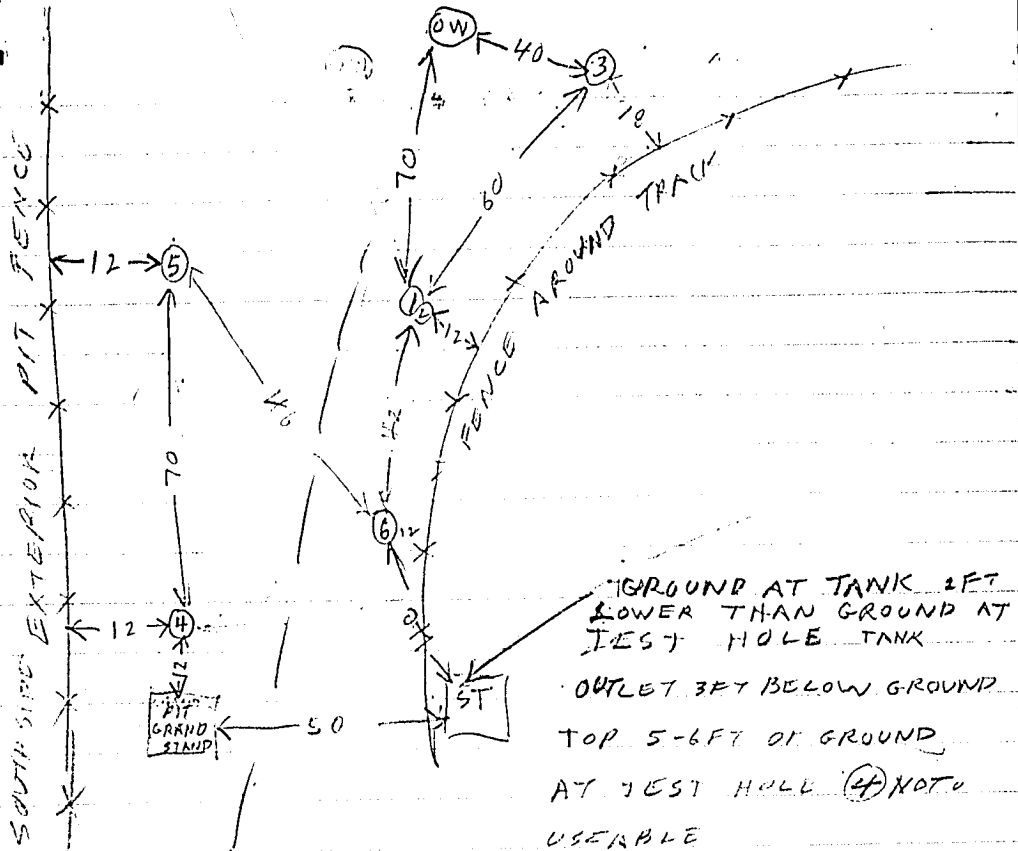 OW
40
3
12
70
60
SOUTH SIDE EXTERIOR PIT FENCE
12
5
1
2
12
FENCE AROUND TRACK
46
42
70
6
12
12
4
12
PIT
GRAND
STAND
50
ST
GROUND AT TANK 1FT
LOWER THAN GROUND AT
TEST HOLE TANK
OUTLET 3FT BELOW GROUND
TOP 5-6FT OF GROUND
AT TEST HOLE 4 NOT
USEABLE